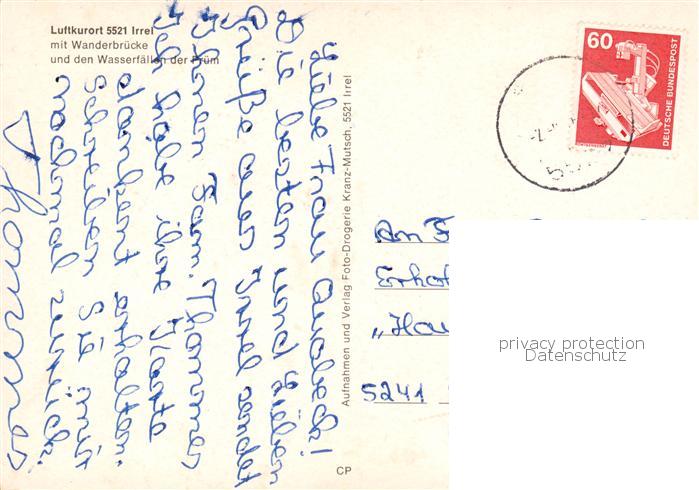 Luftkurort 5521 Irrel
mit Wanderbrücke
und den Wasserfällen der Prüm
Liebe Frau
Die besten und lieben
Grüße aus Irrel sendet
Ihnen Fam. Thommes
Ich habe ihre Karte
dankent erhalten.
Schreiben Sie mir
nochmal zurück.
Thommes
Aufnahmen und Verlag Foto-Drogerie Kranz-Mutsch, 5521 Irrel
CP
60
DEUTSCHE BUNDESPOST
An F
Erho
„Ha
5241
privacy protection
Datenschutz